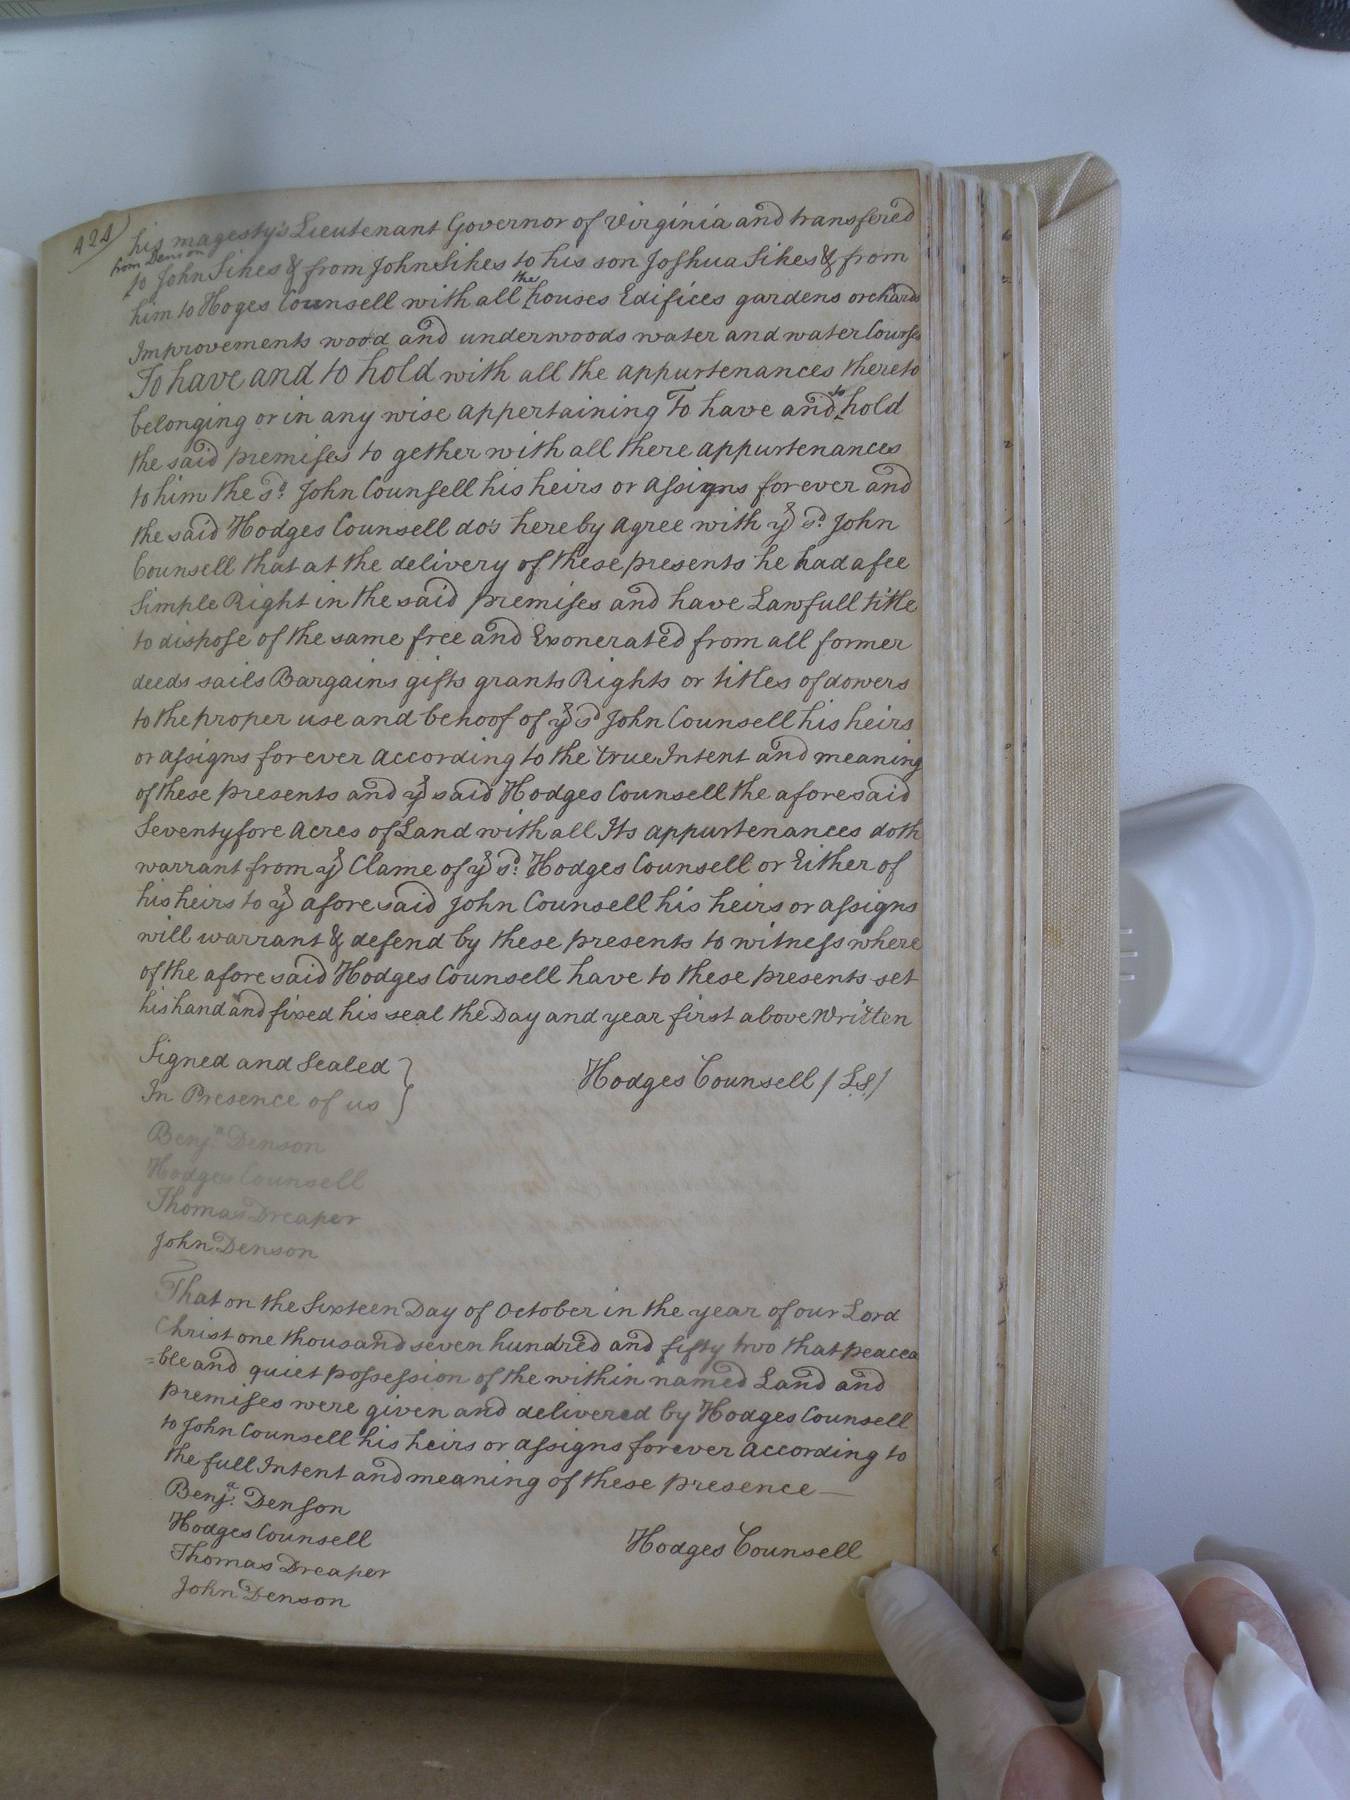 424)
his magesty's Lieutenant Governor of Virginia and transfered
from Denson
to John Sikes & from John Sikes to his son Joshua Sikes & from
him to Hoges Counsell with all the houses Edifices gardens orchards
Improvements wood and underwoods water and water Courses
To have and to hold with all the appurtenances thereto
belonging or in any wise appertaining To have and to hold
the said premises to gether with all there appurtenances
to him the sd. John Counsell his heirs or assigns for ever and
the said Hodges Counsell do's hereby agree with ye sd. John
Counsell that at the delivery of these presents he had a fee
Simple Right in the said premises and have Lawfull title
to dispose of the same free and Exonerated from all former
deeds sails Bargains gifts grants Rights or titles of dowers
to the proper use and behoof of ye sd John Counsell his heirs
or assigns for ever according to the true Intent and meaning
of these presents and ye said Hodges Counsell the aforesaid
Seventyfore acres of Land with all Its appurtenances doth
warrant from ye Clame of ye sd: Hodges Counsell or Either of
his heirs to ye afore said John Counsell his heirs or assigns
will warrant & defend by these presents to witness where
of the afore said Hodges Counsell have to these presents set
his hand and fixed his seal the Day and year first above Written
Signed and Sealed }
In Presence of us }
Hodges Counsell (LS)
Benja Denson
Hodges Counsell
Thomas Dreaper
John Denson
That on the Sixteen Day of October in the year of our Lord
Christ one thousand seven hundred and fifty two that peacea
=ble and quiet possession of the within named Land and
premises were given and delivered by Hodges Counsell
to John Counsell his heirs or assigns forever according to
the full Intent and meaning of these presence—
Benja. Denson
Hodges Counsell
Thomas Dreaper
John Denson
Hodges Counsell